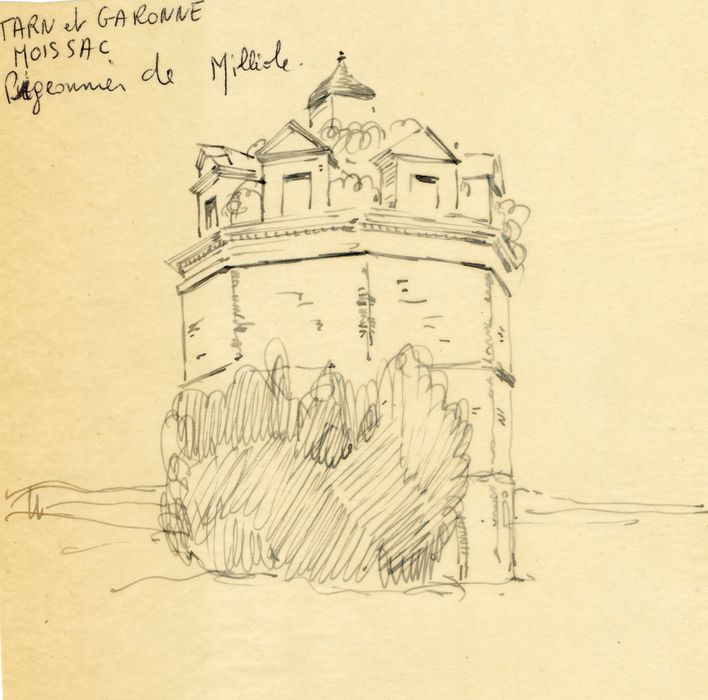 TARN et GARONNE
MOISSAC
Pigeonnier de Milliole.